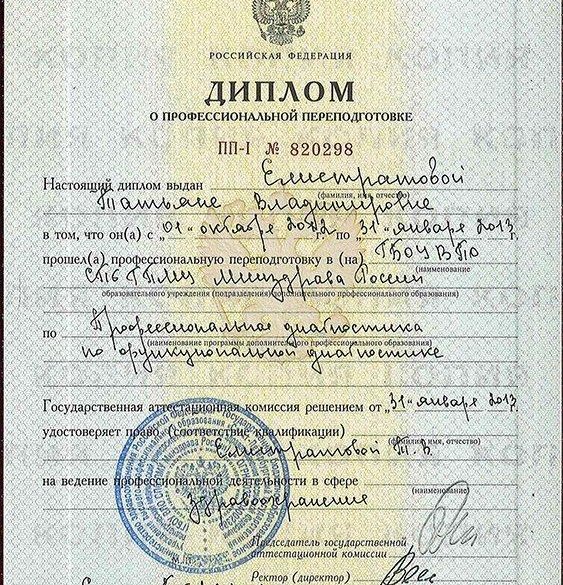 РОССИЙСКАЯ ФЕДЕРАЦИЯ
ДИПЛОМ
О ПРОФЕССИОНАЛЬНОЙ ПЕРЕПОДГОТОВКЕ
ПП-I № 820298
Настоящий диплом выдан Елистратовой
(фамилия, имя, отчество)
Татьяне Владимировне
в том, что он(а) с „01" октября 2012 г. по „31" января 2013 г.
прошел(а) профессиональную переподготовку в (на) ГБОУ ВПО
(наименование
СПб ГПМУ Минздрава России
образовательного учреждения (подразделения) дополнительного профессионального образования)
по Профессиональная диагностика
(наименование программы дополнительного профессионального образования)
по функциональной диагностике
Государственная аттестационная комиссия решением от „31" января 2013
удостоверяет право (соответствие квалификации)
(фамилия, имя, отчество)
Елистратовой Т. В.
на ведение профессиональной деятельности в сфере
(наименование)
Здравоохранение
Председатель государственной
аттестационной комиссии
Ректор (директор)